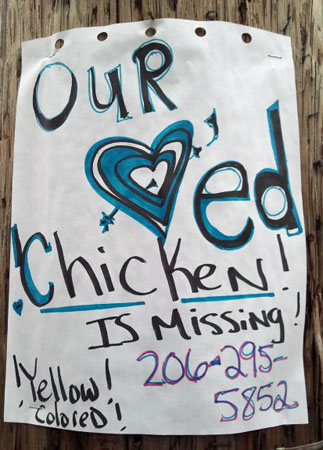 OUR
♥'ed
Chicken!
Is Missing!
!Yellow!
Colored!
206-295-
5852